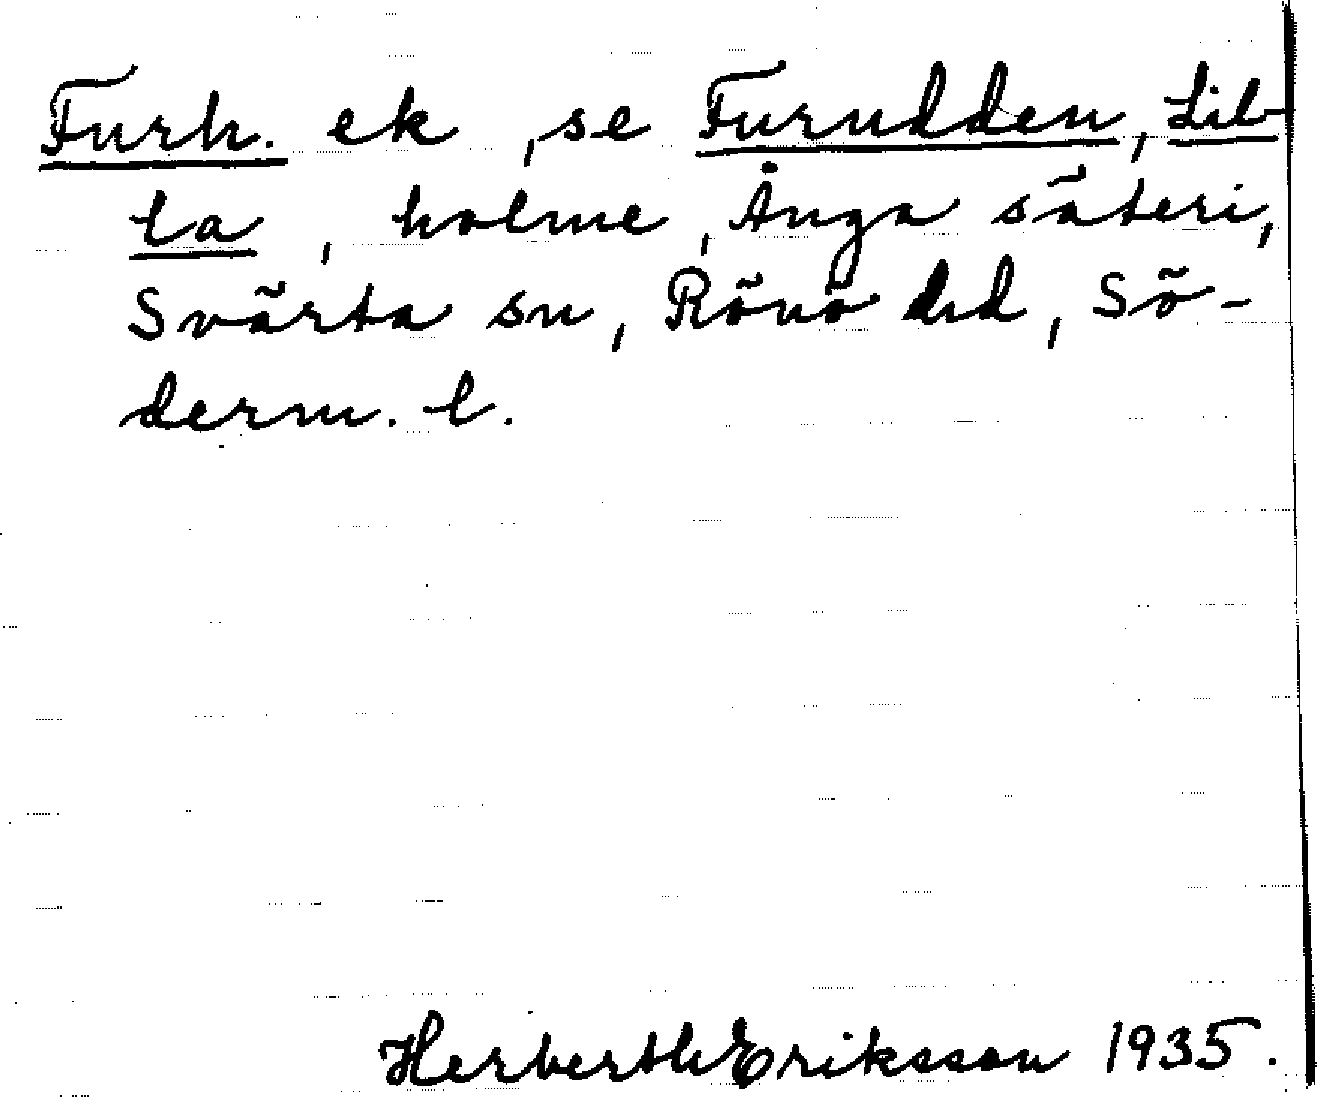 Furh. ek, se Furudden, Lib-
ta, holme, Ånga säteri,
Svärta sn, Rönö hd, Sö-
derm. l.
Herberth Eriksson 1935.